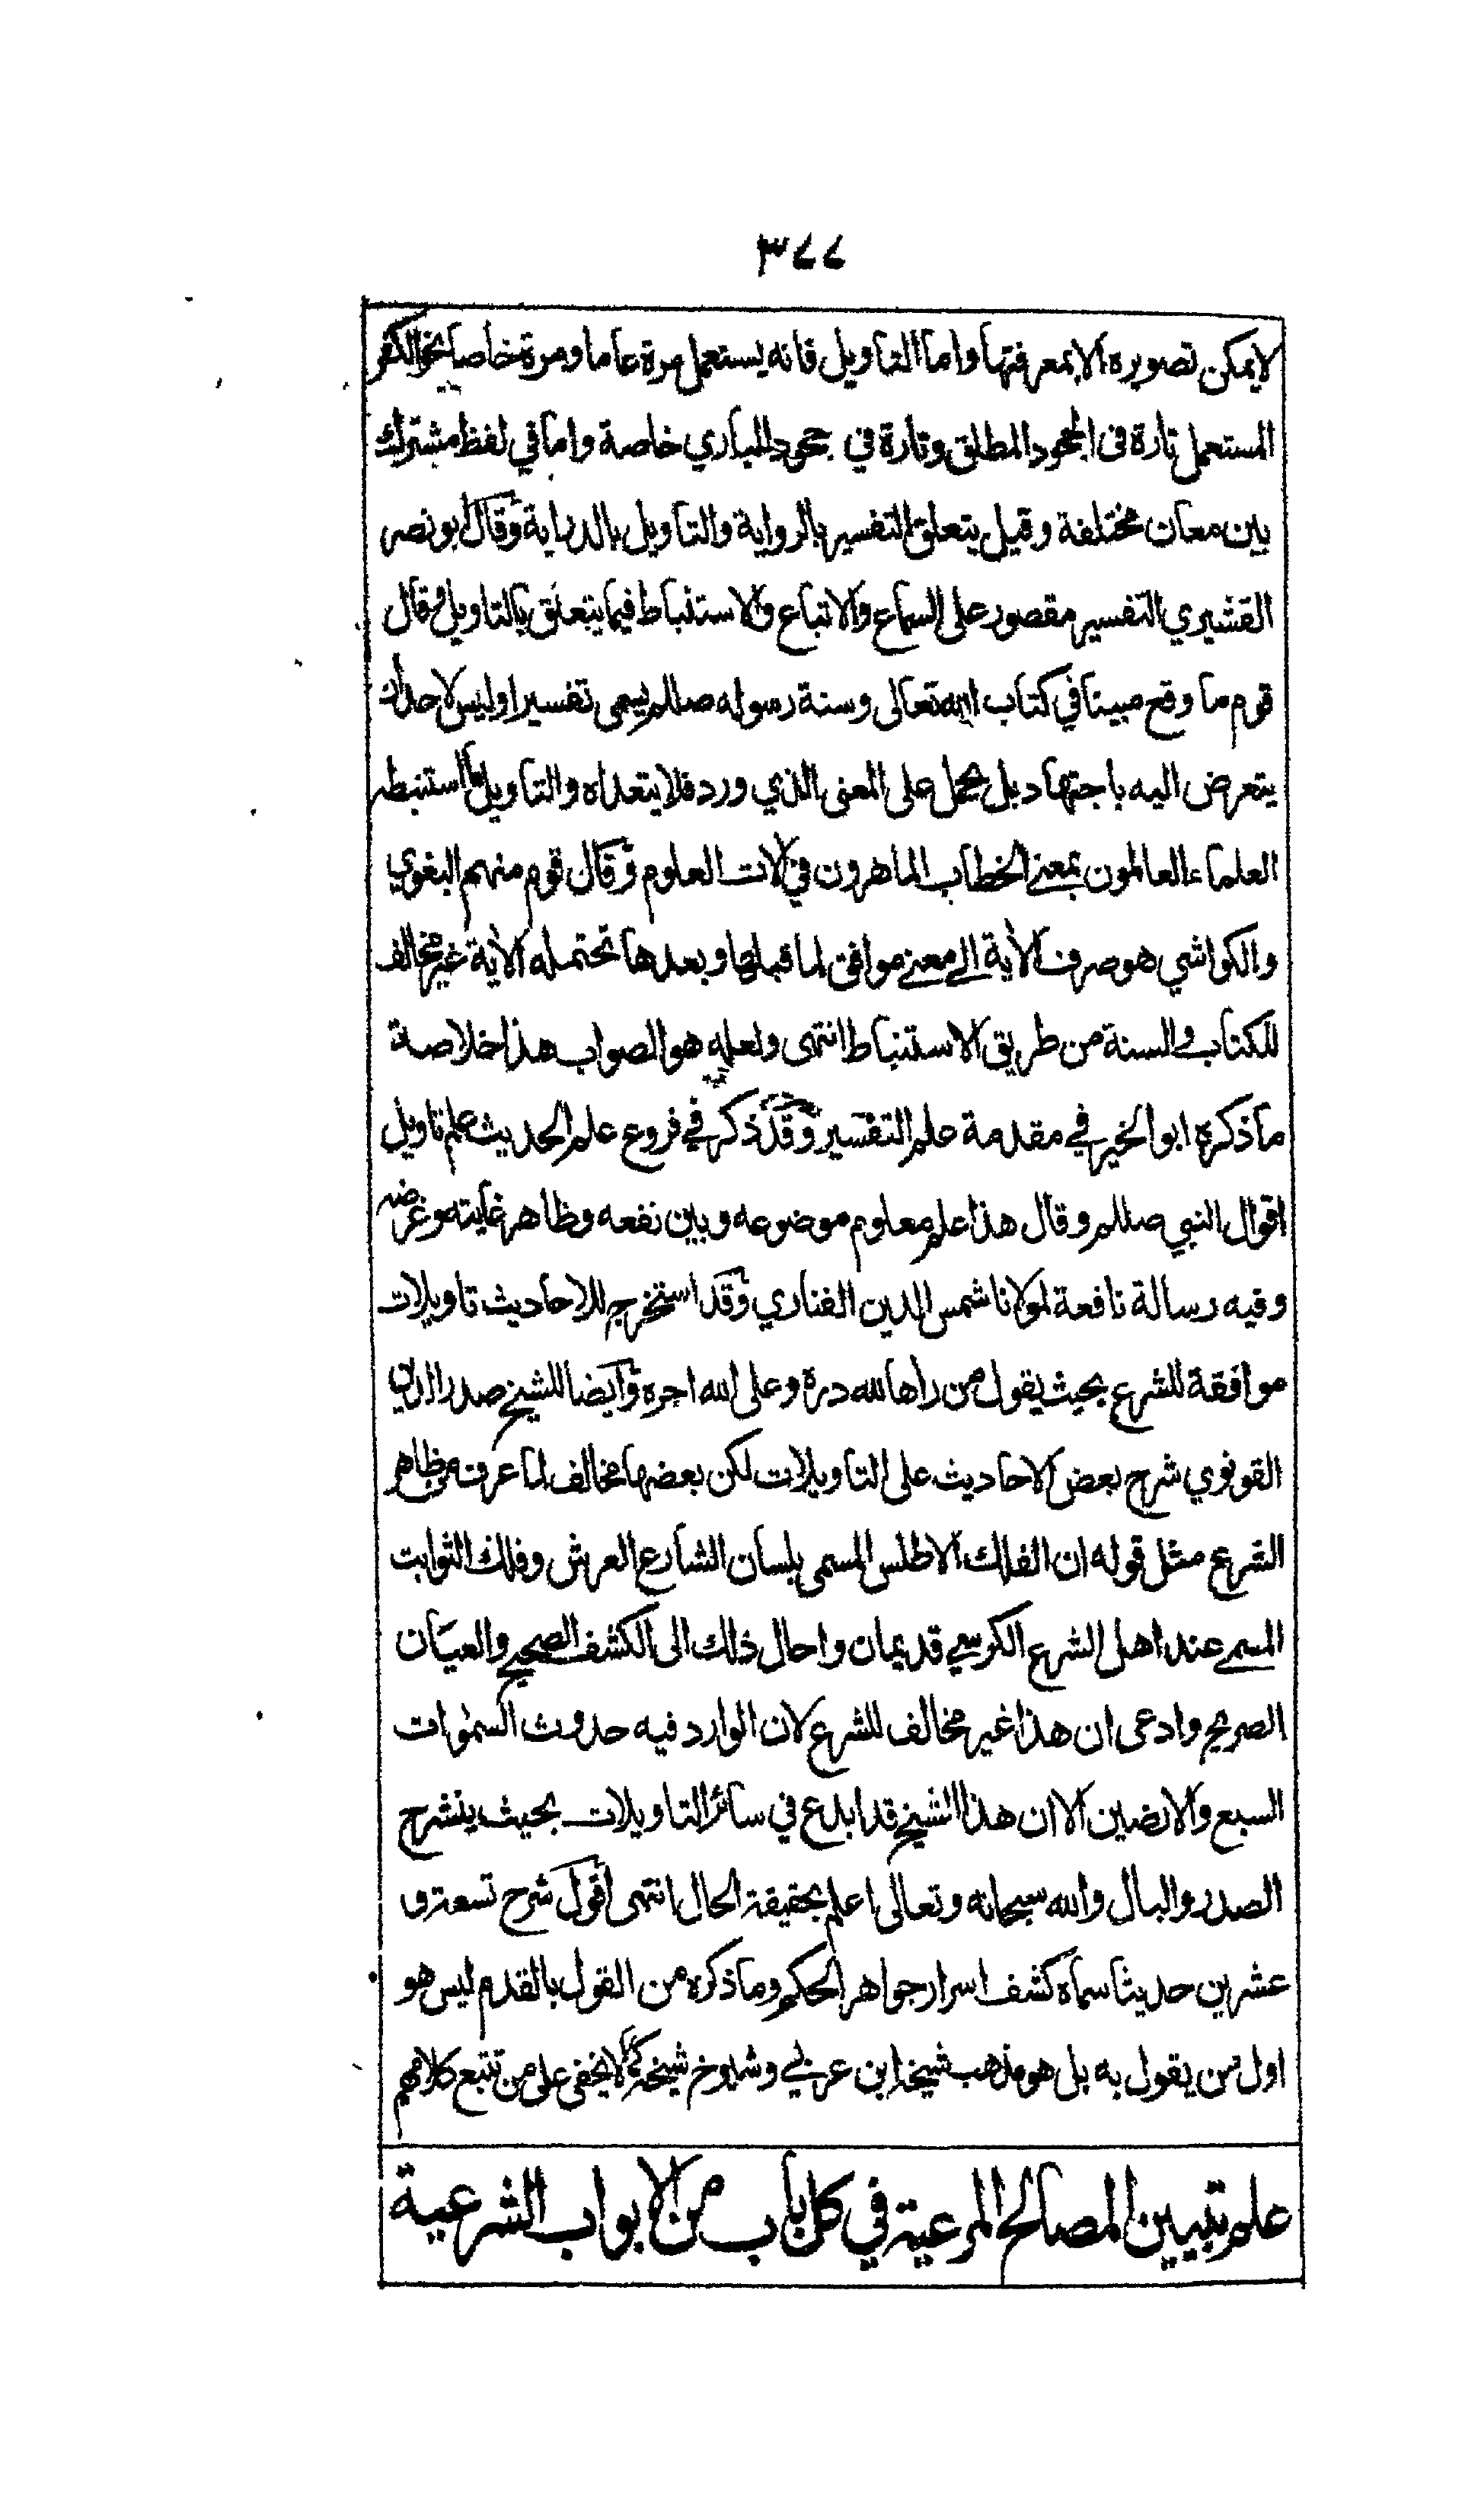 ٣٧٧
لا يمكن تصويره الا بمعرفتها واما التاويل فانه يستعمل مرة عاما ومرة خاصا نحو الكفر
المستعمل تارة في الجحود المطلق وتارة في جحود الباري خاصة واما في لفظ مشترك
بين معان مختلفة وقيل يتعلق التفسير بالرواية والتاويل بالدراية وقال ابو نصر
القشيري التفسير مقصور على السماع والاتباع والاستنباط فيما يتعلق بالتاويل وقال
قوم ما وقع مبينا في كتاب الله تعالى وسنة رسوله صللم يسمى تفسيرا وليس لاحد ان
يتعرض اليه باجتهاد بل يحمل على المعنى الذي ورد فلا يتعداه والتاويل ما استنبطه
العلماء العالمون بمعنى الخطاب الماهرون في الات العلوم وقال قوم منهم البغوي
والكواشي هو صرف الاية الى معنى موافق لما قبلها وبعدها تحتمله الاية غير مخالف
للكتاب والسنة من طريق الاستنباط انتهى ولعله هو الصواب هذا خلاصة
ما ذكره ابو الخير في مقدمة علم التفسير وقد ذكر في فروع علم الحديث علم تاويل
اقوال النبي صللم وقال هذا علم معلوم موضوعه وبين نفعه وظاهر غايته وغرضه
وفيه رسالة نافعة لمولانا شمس الدين الفناري وقد استخرج للاحاديث تاويلات
موافقة للشرع بحيث يقول من راها لله دره وعلى الله اجره وايضا للشيخ صدر الدين
القونوي شرح بعض الاحاديث على التاويلات لكن بعضها مخالف لما عرف من ظاهر
الشرع مثل قوله ان الفلك الاطلس المسمى بلسان الشارع العرش وفلك الثوابت
المسمى عند اهل الشرع الكرسي قديمان واحال ذلك الى الكشف الصحيح والعيان
الصريح وادعى ان هذا غير مخالف للشرع لان الوارد فيه حدوث السموات
السبع والارضين الا ان هذا الشيخ قد ابدع في سائر التاويلات بحيث ينشرح
الصدر والبال والله سبحانه وتعالى اعلم بحقيقة الحال انتهى اقول شرح تسعة و
عشرين حديثا سماه كشف اسرار جواهر الحكم وما ذكره من القول بالقدم ليس هو
اول من يقول به بل هو مذهب شيخه ابن عربي وشيوخ شيخه كما لا يخفى على من تتبع كلامهم
علم تبيين المصالح المرعية في كل باب من الابواب الشرعية